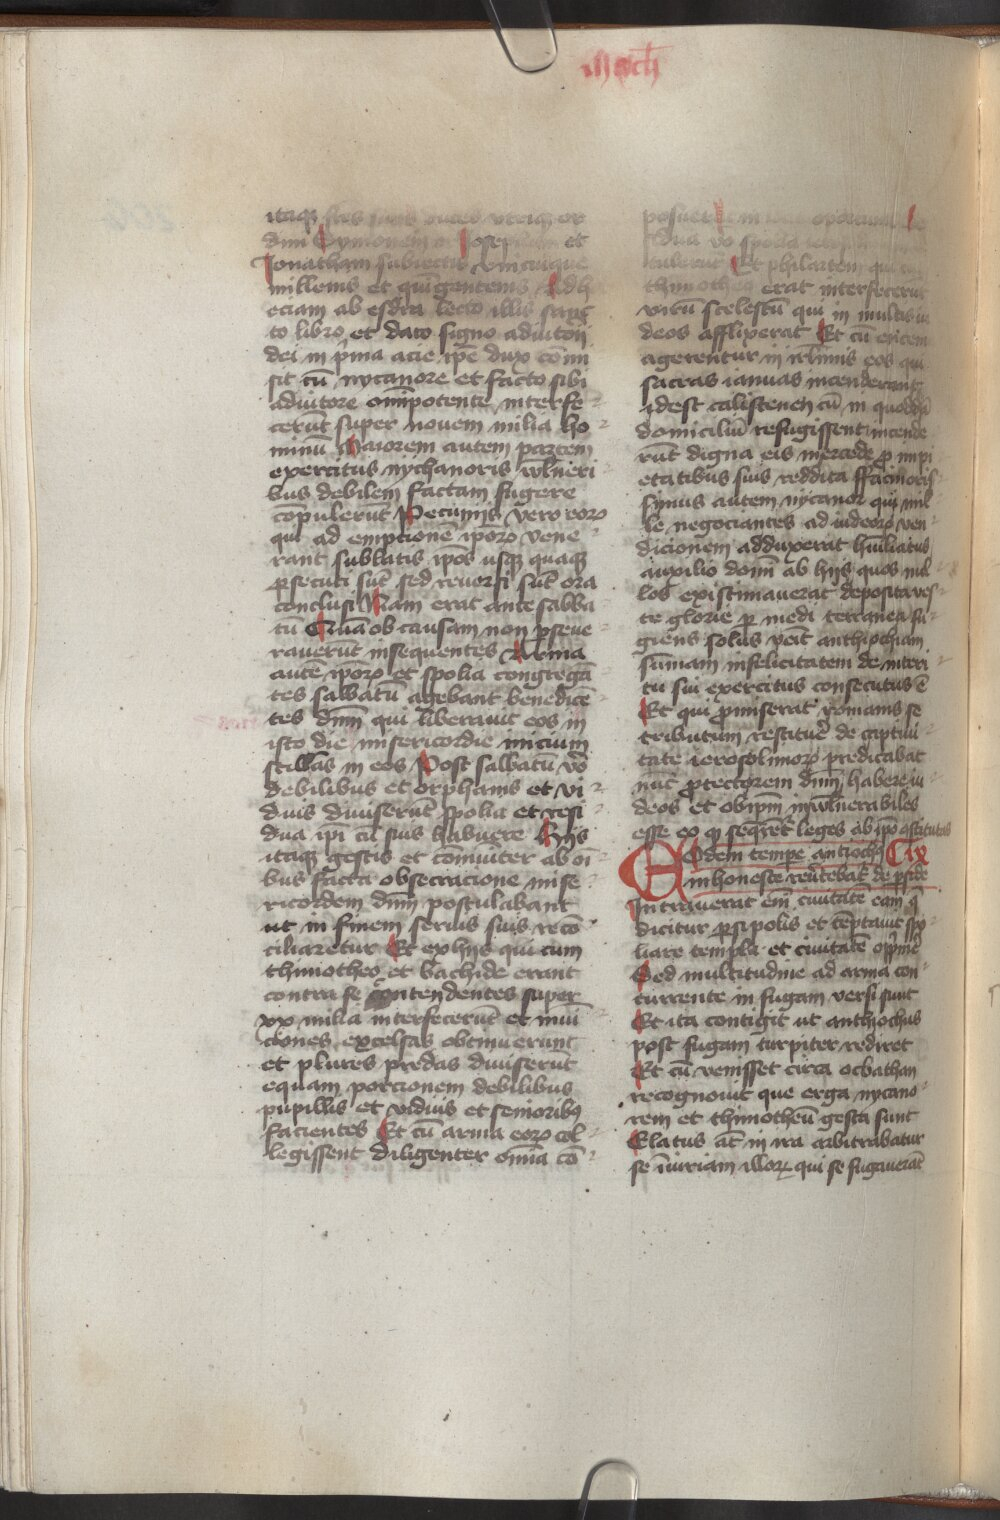 Mach
itaqꝫ frēs suos duces vtriqꝫ or
dini Symonem et Josephum et
Jonatham subiectis vnicuique
millenis et quīgentenis Ad h
eciam ab esdra lecto illis sanc
to libro et dato signo adiutorij
dei in p̄ma acie ip̄e dux cōmi
sit cū nycanore et facto sibi
adiutore om̄ipotente interfe
cerūt super novem milia ho
minū Maiorem autem partem
exercitus nychanoris wlneri
bus debilem factam fugere
cōpulerūt Pecunijs vero eorꝫ
qui ad empcionē ipōrꝫ vene
rant sublatis ipōs usqꝫ quaqꝫ
ꝑsecuti sūt sed reuersi sūt ora
conclusi Nam erat ante sabba
tū Quā ob causam non ꝑseue
rauerūt insequentes Arma
autē ipōrꝫ et spolia congregā
tes sabbatū agebant benedicē
tes dnm̄ qui liberauit eos in
isto die misericordie inicium
stillās in eos Post sabbatū vō
debilibus et orphanis et vi
duis diuiserūt spolia et resi
dua ipi cū suis habuere Hijs
itaqꝫ gestis et cōmiter ab oī
bus facta obsecracione mise
ricordem dnm̄ postulabant
ut in finem seruis suis recō
ciliaretur Et ex hijs qui cum
thimotheo et bachide erant
contra se contendentes super
xx milia interfecerūt et mūi
ciones excelsas obtinuerunt
et plures predas diuiserūt
equam porcionem debilibus
pupillis et viduis et senioribꝫ
facientes Et cū arma eorꝫ col
legissent diligenter om̄ia cō
posuerūt in
sidua vō spolia
tulerūt Et philarten qui cū
thimotheo erat interfecerūt
virū scelestū qui in multis iu
deos afflixerat Et cū epicem
agerentur in irl̄imis eos qui
sacras ianuas incenderant
idest calistenen cū in quoddā
domiciliū refugissent incende
rūt digna eis mercede ꝓ impi
etatibus suis reddita ffacinoris
simus autem nycanor qui mil
le negociantes ad iudeorꝫ ven
dicionem adduxerat hūiliatus
auxilio domī ab hijs quos nul
los existimauerat deposita ves
te glorie ꝑ medi terranea fu
giens solus veīt anthiochiam
sūmam infelicitatem de interi
tu sui exercitus consecutus ē
Et qui ꝓmiserat romanis se
tributum restituēr de captiui
tate ierosolimorꝫ predicabat
nūc ꝓtectorem dnm̄ habere iu
deos et ob ipm̄ inwlnerabiles
esse eo qꝫ seqrēt̄ leges ab ipō ɔstitutas
Eodem tempe antiochꝫ Cᵃ ix
inhoneste reūtebat de ꝑside
Intrauerat em̄ ciuitatē eam q̄
dicitur ꝑsipolis et tēptauit spo
liare templa et ciuitatē opp̄mēr
Sed multitudine ad arma con
currente in fugam versi sunt
Et ita contigit ut anthiochus
post fugam turpiter rediret
Et cū venisset circa ecbathan
recognouit que erga nycano
rem et thimotheū gesta sunt
Elatus aūt in ira arbitrabatur
se iniuriam illorꝫ qui se fugauerāt